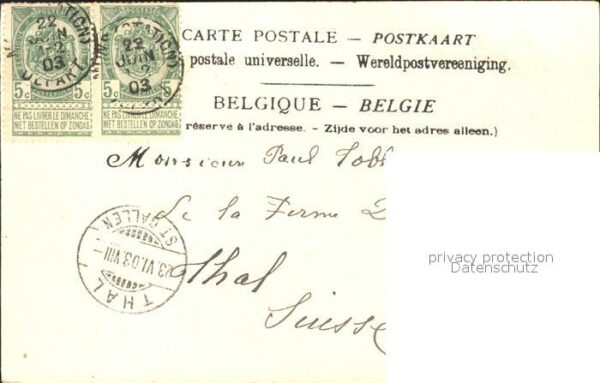 22
JUIN
1-2
03
DEPART
22
JUIN
1-2
03
5c 5c
5c
NE PAS LIVRER LE DIMANCHE
NIET BESTELLEN OP ZONDAG
NE PAS LIVRER LE DIMANCHE
NIET BESTELLEN OP ZONDAG
CARTE POSTALE – POSTKAART
postale universelle. – Wereldpostvereeniging.
BELGIQUE – BELGIE
réservé à l'adresse. - Zijde voor het adres alleen.)
Monsieur Paul
Le la Ferme
Thal
Suisse
ST. GALLEN
23.VI.03.VIII–
THAL
privacy protection
Datenschutz